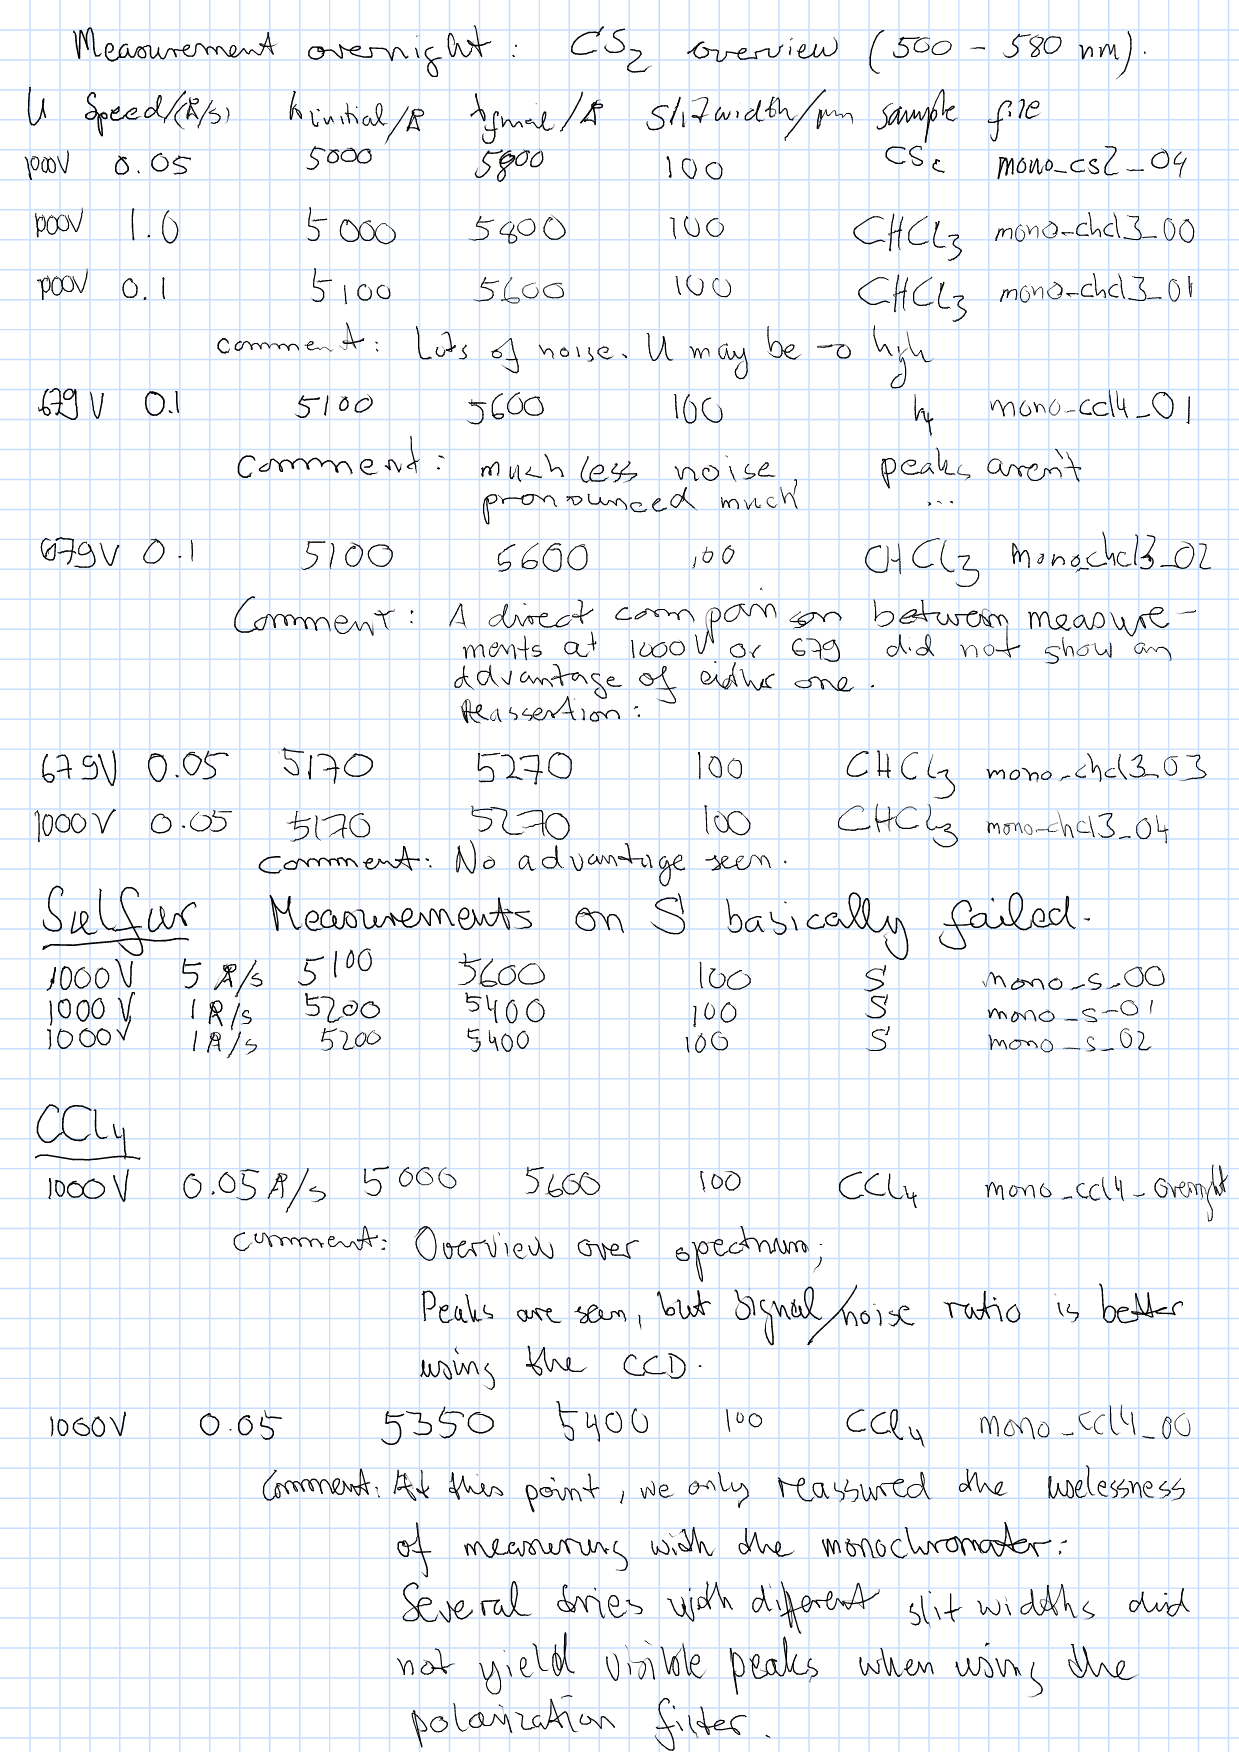 Measurement overnight: CS2 overview (500 - 580 nm).
U Speed/(Å/s) λinitial/Å λfinal/Å Slitwidth/μm sample file
1000V 0.05 5000 5800 100 CS2 mono_cs2_04
1000V 1.0 5000 5800 100 CHCl3 mono_chcl3_00
1000V 0.1 5100 5600 100 CHCl3 mono_chcl3_01
comment: Lots of noise. U may be to high
679V 0.1 5100 5600 100 mono_ccl4_01
Comment: much less noise, peaks aren't
pronounced much ...
679V 0.1 5100 5600 100 CHCl3 mono_chcl3_02
Comment: A direct comparison between measure-
ments at 1000V or 679 did not show an
advantage of either one.
Reassertion:
679V 0.05 5170 5270 100 CHCl3 mono_chcl3_03
1000V 0.05 5170 5270 100 CHCl3 mono_chcl3_04
comment: No advantage seen.
Sulfur Measurements on S basically failed.
1000V 5 Å/s 5100 5600 100 S mono_s_00
1000V 1 Å/s 5200 5400 100 S mono_s_01
1000V 1 Å/s 5200 5400 100 S mono_s_02
CCl4
1000V 0.05 Å/s 5000 5600 100 CCl4 mono_ccl4_overnight
comment: Overview over spectrum;
Peaks are seen, but signal/noise ratio is better
using the CCD.
1000V 0.05 5350 5400 100 CCl4 mono_ccl4_00
Comment: At this point, we only reassured the uselessness
of measuring with the monochromator:
Several tries with different slit widths did
not yield visible peaks when using the
polarization filter.